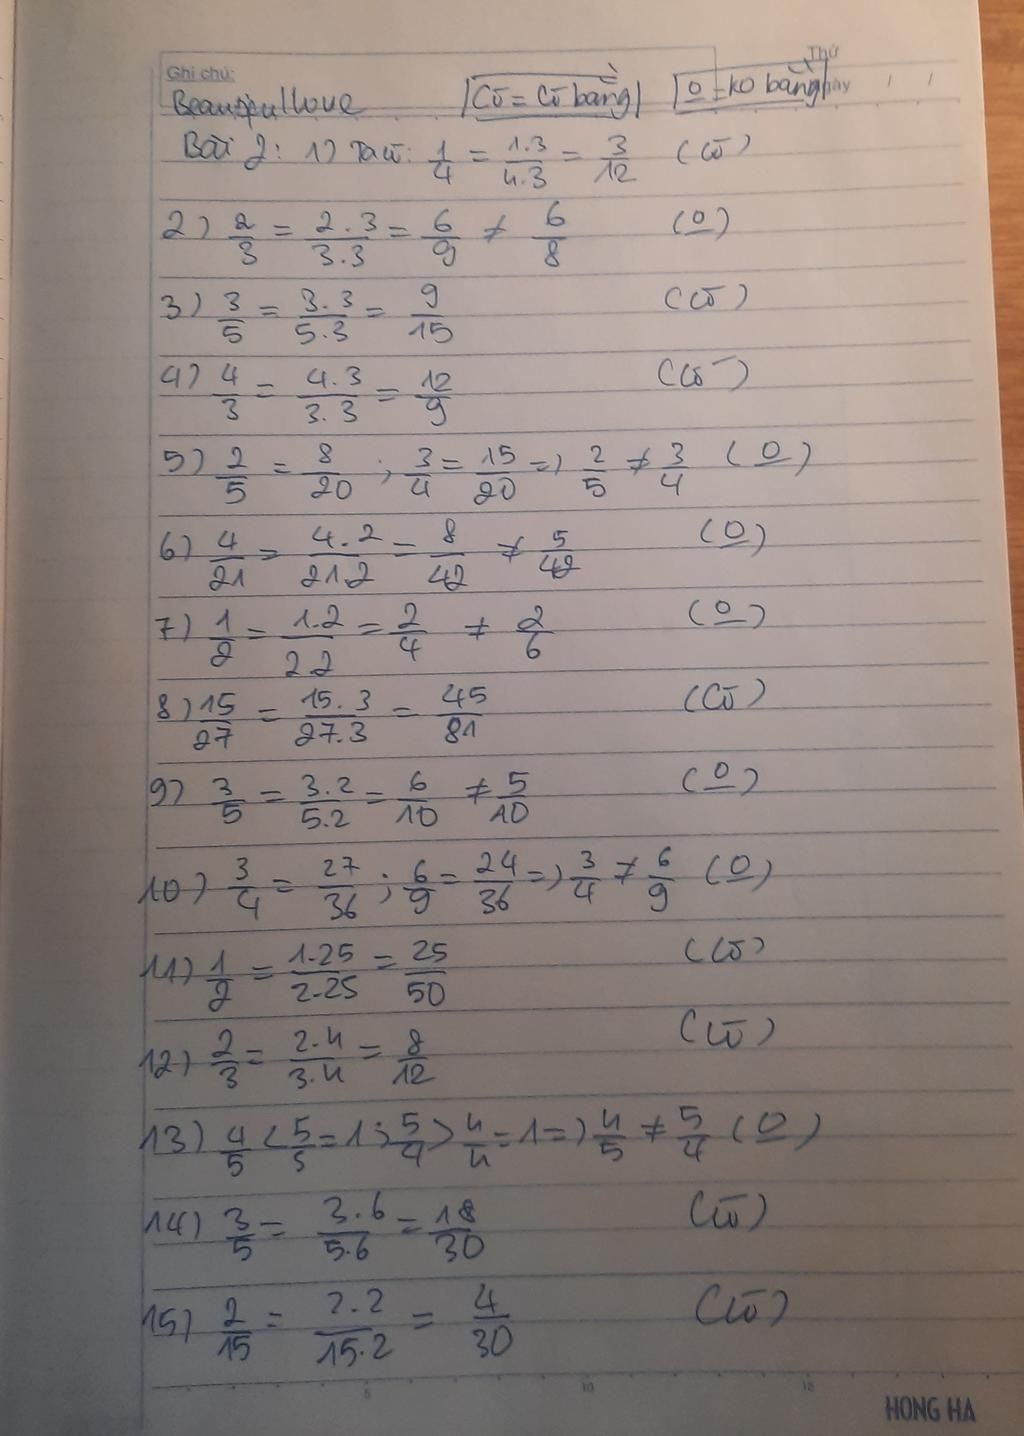 Thứ
Ghi chú:
Beautiful love |Cō = Có bằng| |o = ko bằng|
Bài 2: 1) Ta có: 1/4 = 1.3/4.3 = 3/12 (Cō)
2) 2/3 = 2.3/3.3 = 6/9 ≠ 6/8 (o)
3) 3/5 = 3.3/5.3 = 9/15 (Cō)
4) 4/3 = 4.3/3.3 = 12/9 (Cō)
5) 2/5 = 8/20 ; 3/4 = 15/20 => 2/5 ≠ 3/4 (o)
6) 4/21 = 4.2/21.2 = 8/42 ≠ 5/42 (o)
7) 1/2 = 1.2/2.2 = 2/4 ≠ 2/6 (o)
8) 15/27 = 15.3/27.3 = 45/81 (Cō)
9) 3/5 = 3.2/5.2 = 6/10 ≠ 5/10 (o)
10) 3/4 = 27/36 ; 6/9 = 24/36 => 3/4 ≠ 6/9 (o)
11) 1/2 = 1.25/2.25 = 25/50 (Cō)
12) 2/3 = 2.4/3.4 = 8/12 (Cō)
13) 4/5 < 5/5 = 1 ; 5/4 > 4/4 = 1 => 4/5 ≠ 5/4 (o)
14) 3/5 = 3.6/5.6 = 18/30 (Cō)
15) 2/15 = 2.2/15.2 = 4/30 (Cō)
5 10 15
HONG HA